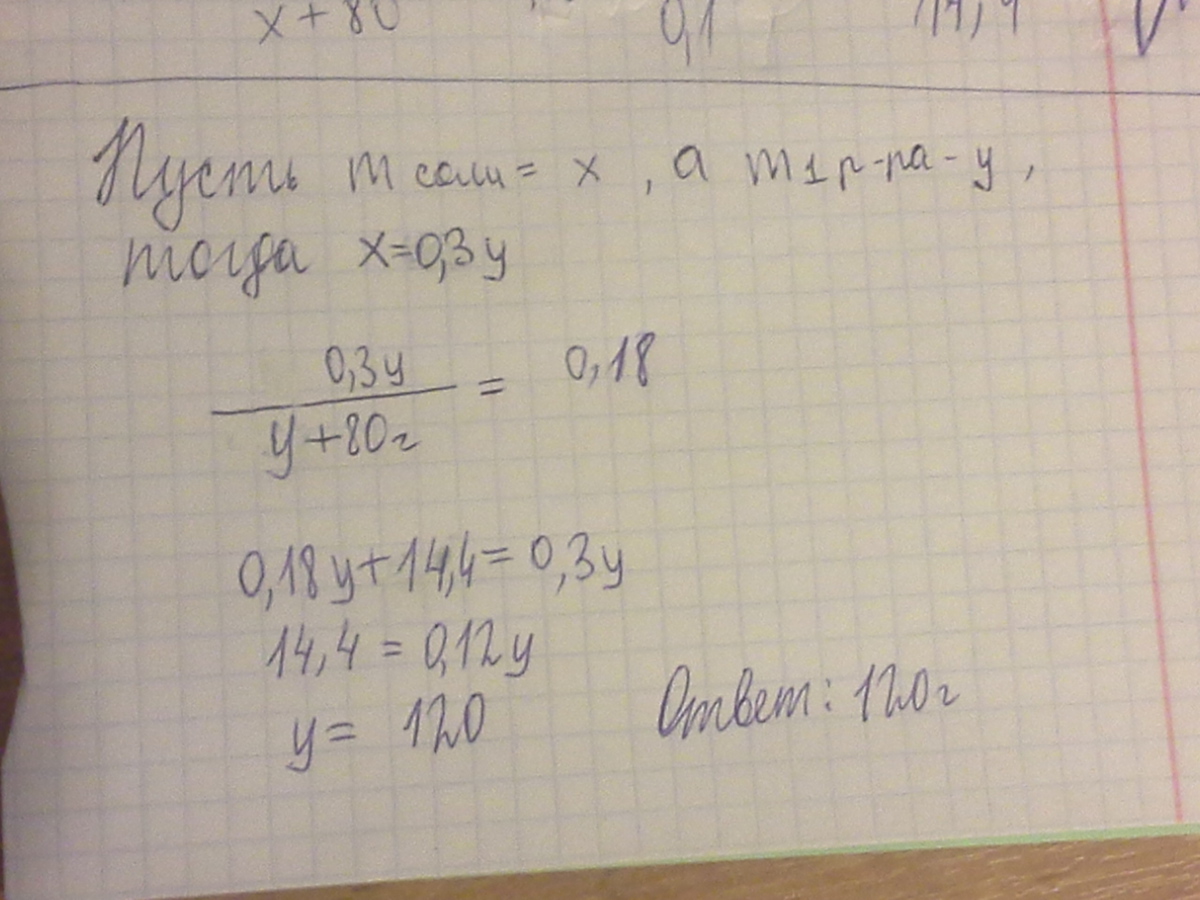 x + 80 0,1 14,4
Пусть m соли = x , а m1 р-ра - y ,
тогда x=0,3y
0,3y
y+80г
= 0,18
0,18y+14,4=0,3y
14,4 = 0,12y
y = 120 Ответ: 120г